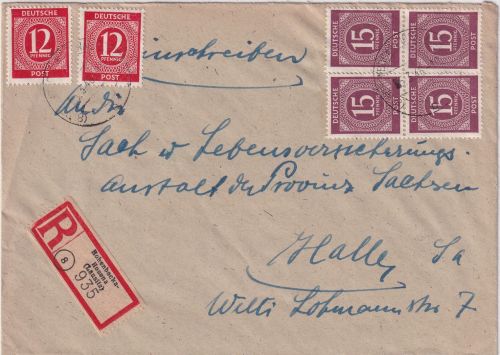 DEUTSCHE DEUTSCHE
12 12
PFENNIG PFENNIG
POST POST
15 15
PFENNIG PFENNIG
DEUTSCHE POST DEUTSCHE POST
15 15
PFENNIG PFENNIG
DEUTSCHE POST DEUTSCHE POST
Einschreiben
An die
Sach u Lebensversicherungs-
anstalt der Provinz Sachsen
Halle, Sa
Willi Lohmannstr 7
R
Hohenbocka-
(Lausitz)
8
935